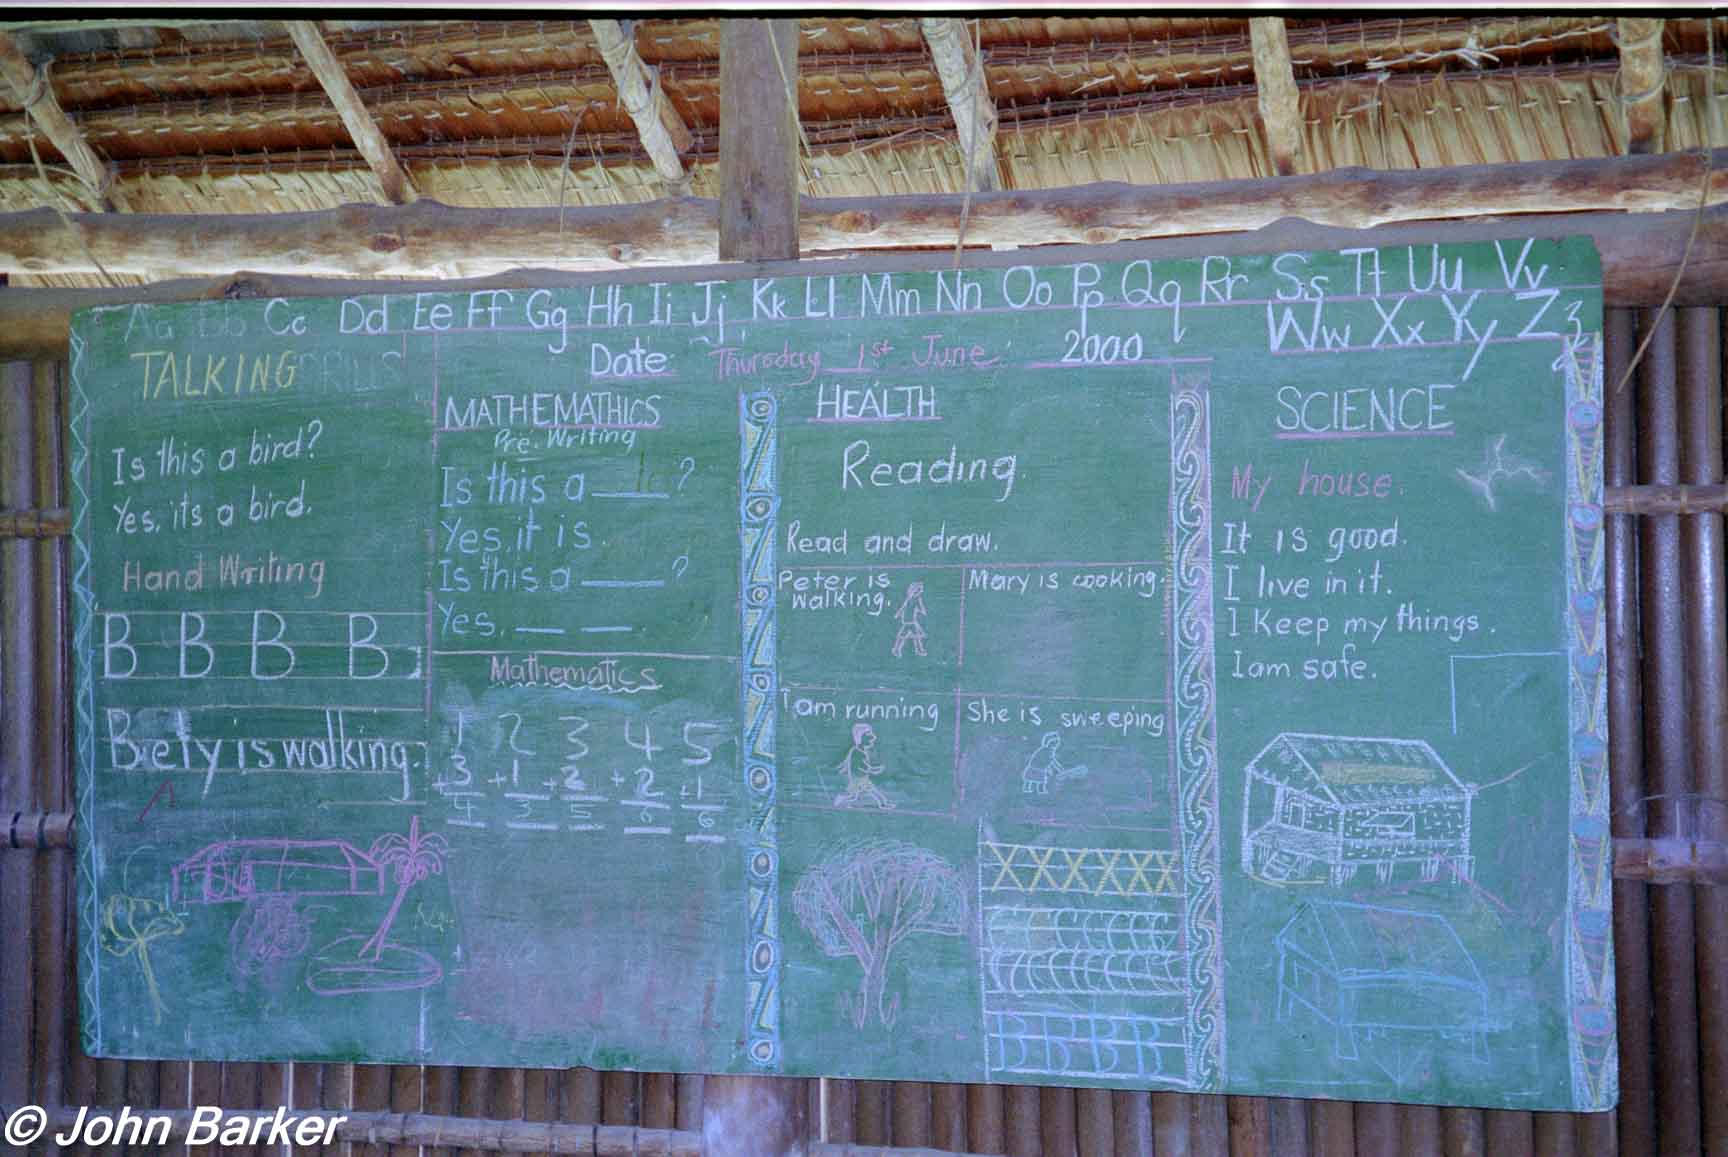 Aa Bb Cc Dd Ee Ff Gg Hh Ii Jj Kk Ll Mm Nn Oo Pp Qq Rr Ss Tt Uu Vv
Ww Xx Yy Zz
Date: Thursday 1st June. 2000
TALKING
Is this a bird?
Yes, its a bird.
Hand Writing
B B B B
Bety is walking.
MATHEMATHICS
Pre. Writing
Is this a ____ ?
Yes, it is.
Is this a ____ ?
Yes, __ __
Mathematics
1 2 3 4 5
+3 +1 +2 +2 +1
4 3 5 6 6
HEALTH
Reading.
Read and draw.
Peter is
walking.
Mary is cooking.
I am running
She is sweeping
B B B B
SCIENCE
My house.
It is good.
I live in it.
I Keep my things.
I am safe.
© John Barker